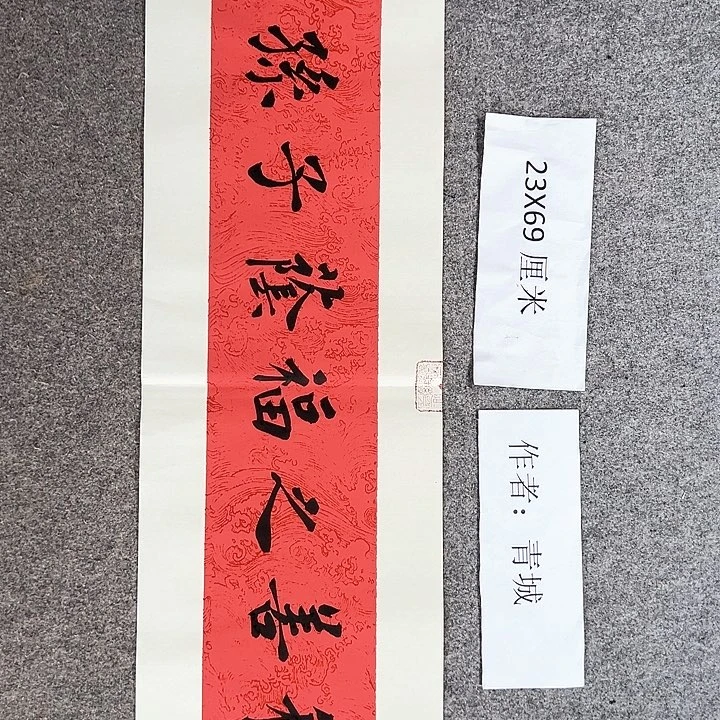 善之福隆子孫
23X69 厘米
作者：青城